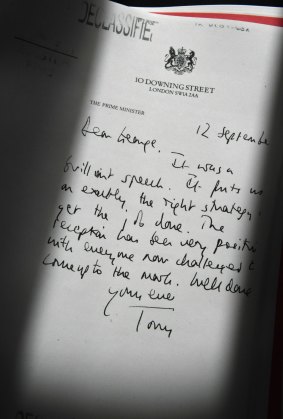 DECLASSIFIED
10 DOWNING STREET
LONDON SW1A 2AA
THE PRIME MINISTER
12 September
Dear George,
It was a
brilliant speech. It puts us
on exactly the right strategy,
get the job done. The
reception has been very positive
with everyone now challenged
come up to the mark. Well done
Yours ever
Tony